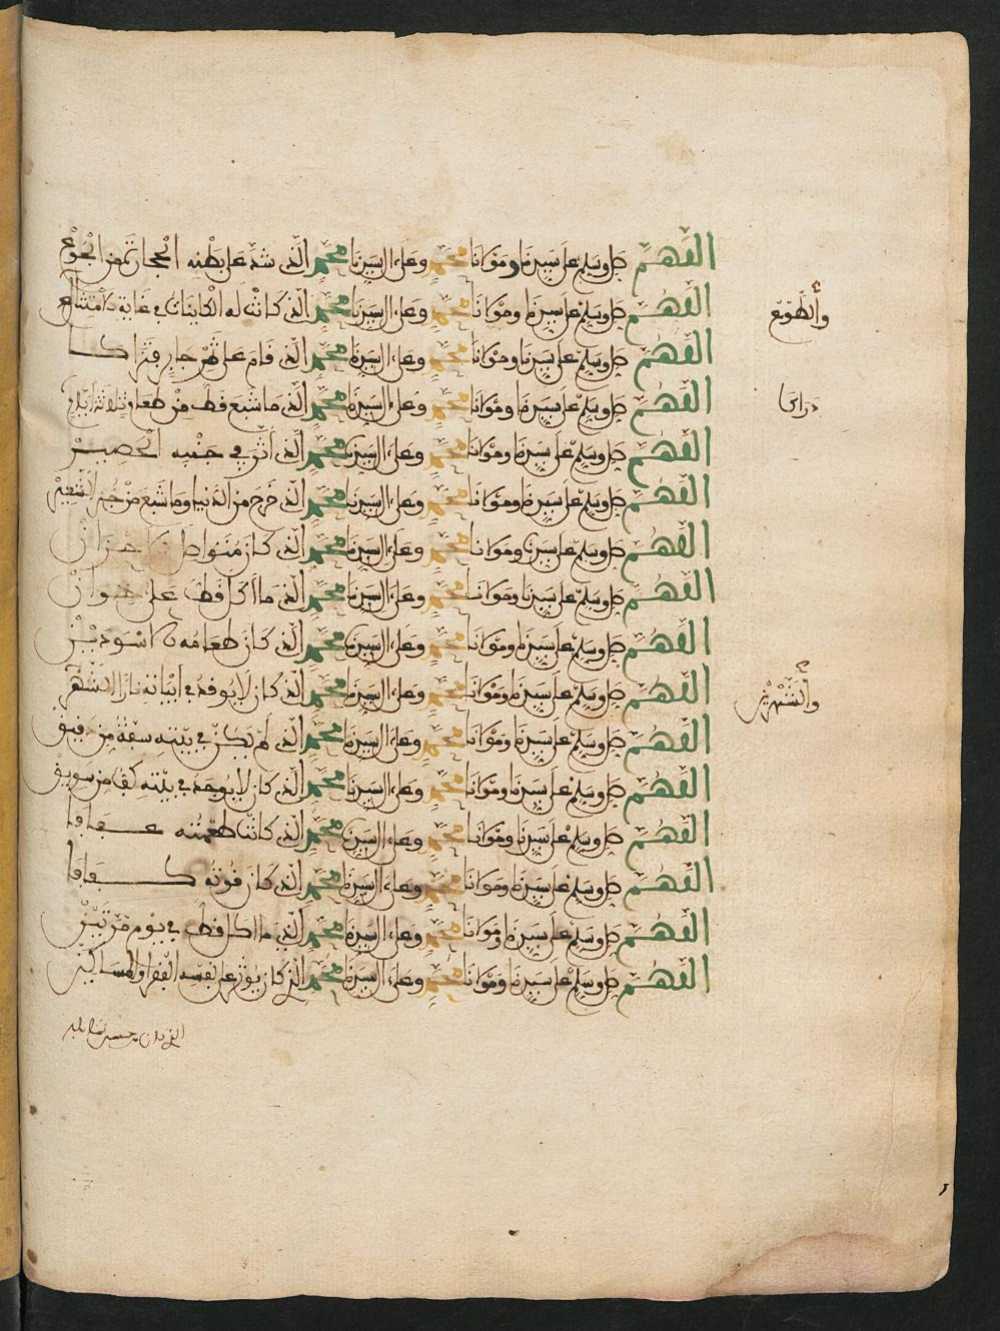 اللهم صل وسلم على سيدنا ومولانا محمد وعلى ءال سيدنا محمد الذي شد على بطنه الحجار من الجوع
اللهم صل وسلم على سيدنا ومولانا محمد وعلى ءال سيدنا محمد الذي كانت له الكاينات في غاية الامتثال
والطوع
اللهم صل وسلم على سيدنا ومولانا محمد وعلى ءال سيدنا محمد الذي قام على
اللهم صل وسلم على سيدنا ومولانا محمد وعلى ءال سيدنا محمد الذي ما شبع قط من طعام ثلاثة ايام
اللهم صل وسلم على سيدنا ومولانا محمد وعلى ءال سيدنا محمد الذي اثر في جنبه الحصير
اللهم صل وسلم على سيدنا ومولانا محمد وعلى ءال سيدنا محمد الذي خرج من الدنيا وما شبع من خبز الشعير
اللهم صل وسلم على سيدنا ومولانا محمد وعلى ءال سيدنا محمد الذي كان متواصل الاحزان
اللهم صل وسلم على سيدنا ومولانا محمد وعلى ءال سيدنا محمد الذي ما اكل قط على خوان
اللهم صل وسلم على سيدنا ومولانا محمد وعلى ءال سيدنا محمد الذي كان طعامه الاسودين
اللهم صل وسلم على سيدنا ومولانا محمد وعلى ءال سيدنا محمد الذي كان لا يوقد في ابياته نار الشهر
والشهرين
اللهم صل وسلم على سيدنا ومولانا محمد وعلى ءال سيدنا محمد الذي لم يكن في بيته سفة من دقيق
اللهم صل وسلم على سيدنا ومولانا محمد وعلى ءال سيدنا محمد الذي كان لا يوجد في بيته كف من سويق
اللهم صل وسلم على سيدنا ومولانا محمد وعلى ءال سيدنا محمد الذي كانت طعمته عفافا
اللهم صل وسلم على سيدنا ومولانا محمد وعلى ءال سيدنا محمد الذي كان قوته كفافا
اللهم صل وسلم على سيدنا ومولانا محمد وعلى ءال سيدنا محمد الذي ما اكل قط في يوم مرتين
اللهم صل وسلم على سيدنا ومولانا محمد وعلى ءال سيدنا محمد الذي كان يوثر على نفسه الفقرا والمساكين